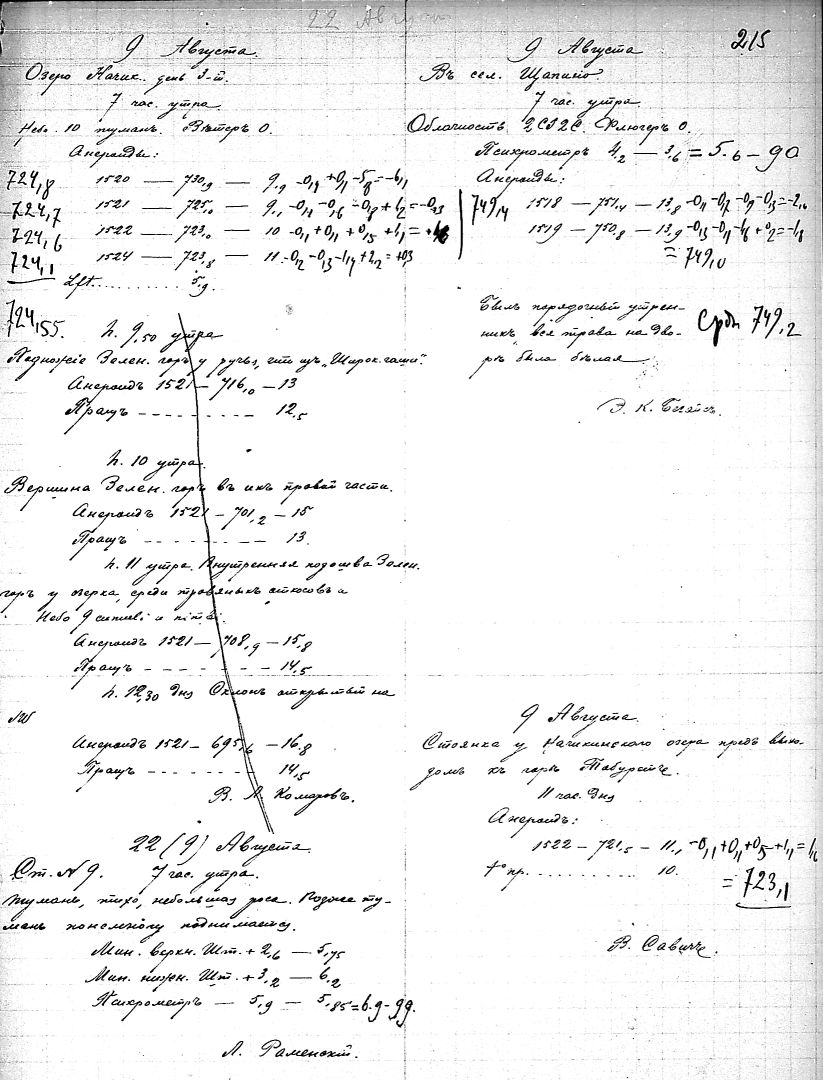 22 Август
215
9 Августа.
Озеро Начик. день 3-й.
7 час. утра
Небо 10 туманъ. Вѣтеръ 0.
Анероиды:
724,8 1520 — 730,9 — 9,9
724,7 1521 — 725,0 — 9,1
724,6 1522 — 723,0 — 10
724,1 1524 — 723,8 — 11
5,9
724,55
h. 9,50 утра
Подножіе Зелен. горъ у ручья
Анероидъ 1521 — 716,0 — 13
Пращъ - - - - - - - 12,5
h. 10 утра.
Вершина Зелен. горъ въ ихъ правой части.
Анероидъ 1521 — 701,2 — 15
Пращъ - - - - - - - 13
h. 11 утра. Внутренняя подошва Зелен.
горъ у озерка, среди травяныхъ откосовъ
Небо 9 cumuli и nimbi.
Анероидъ 1521 — 708,9 — 15,8
Пращъ - - - - - - - 14,5
h. 12,30 дня Склонъ открытый на
NW
Анероидъ 1521 — 695,6 — 16,8
Пращъ - - - - - - - 14,5
В. Л. Комаровъ.
22 (9) Августа
Ст. N 9. 7 час. утра.
Туманъ, тихо, небольшая роса. Позже ту-
манъ понемногу поднимается.
Мин. верхн. Шт. + 2,6 — 5,75
Мин. нижн. Шт. + 3,2 — 6,2
Психрометръ — 5,9 — 5,85 = 6.9 - 99.
Л. Раменскій.
9 Августа
Въ сел. Щапино
7 час. утра.
Облачность 2CS2C. Флюгеръ 0.
Психрометръ 4,2 — 3,6 = 5.6 — 90
Анероиды:
749,4 1518 — 751,4 — 13,8
1519 — 750,8 — 13,9
= 749,0
Былъ порядочный утрен-
никъ вся трава на дво-
рѣ была бѣлая
Срдн 749,2
9 Августа.
Стоянка у Начикинского озера предъ выхо-
домъ къ горѣ Табуретче.
11 час. дня
Анероидъ:
1522 — 721,5 — 11,1 -0,1 +0,1 +0,5 +1,1 = 1,6
t° пр. . . . . . . . . 10.
= 723,1
В. Савичъ.